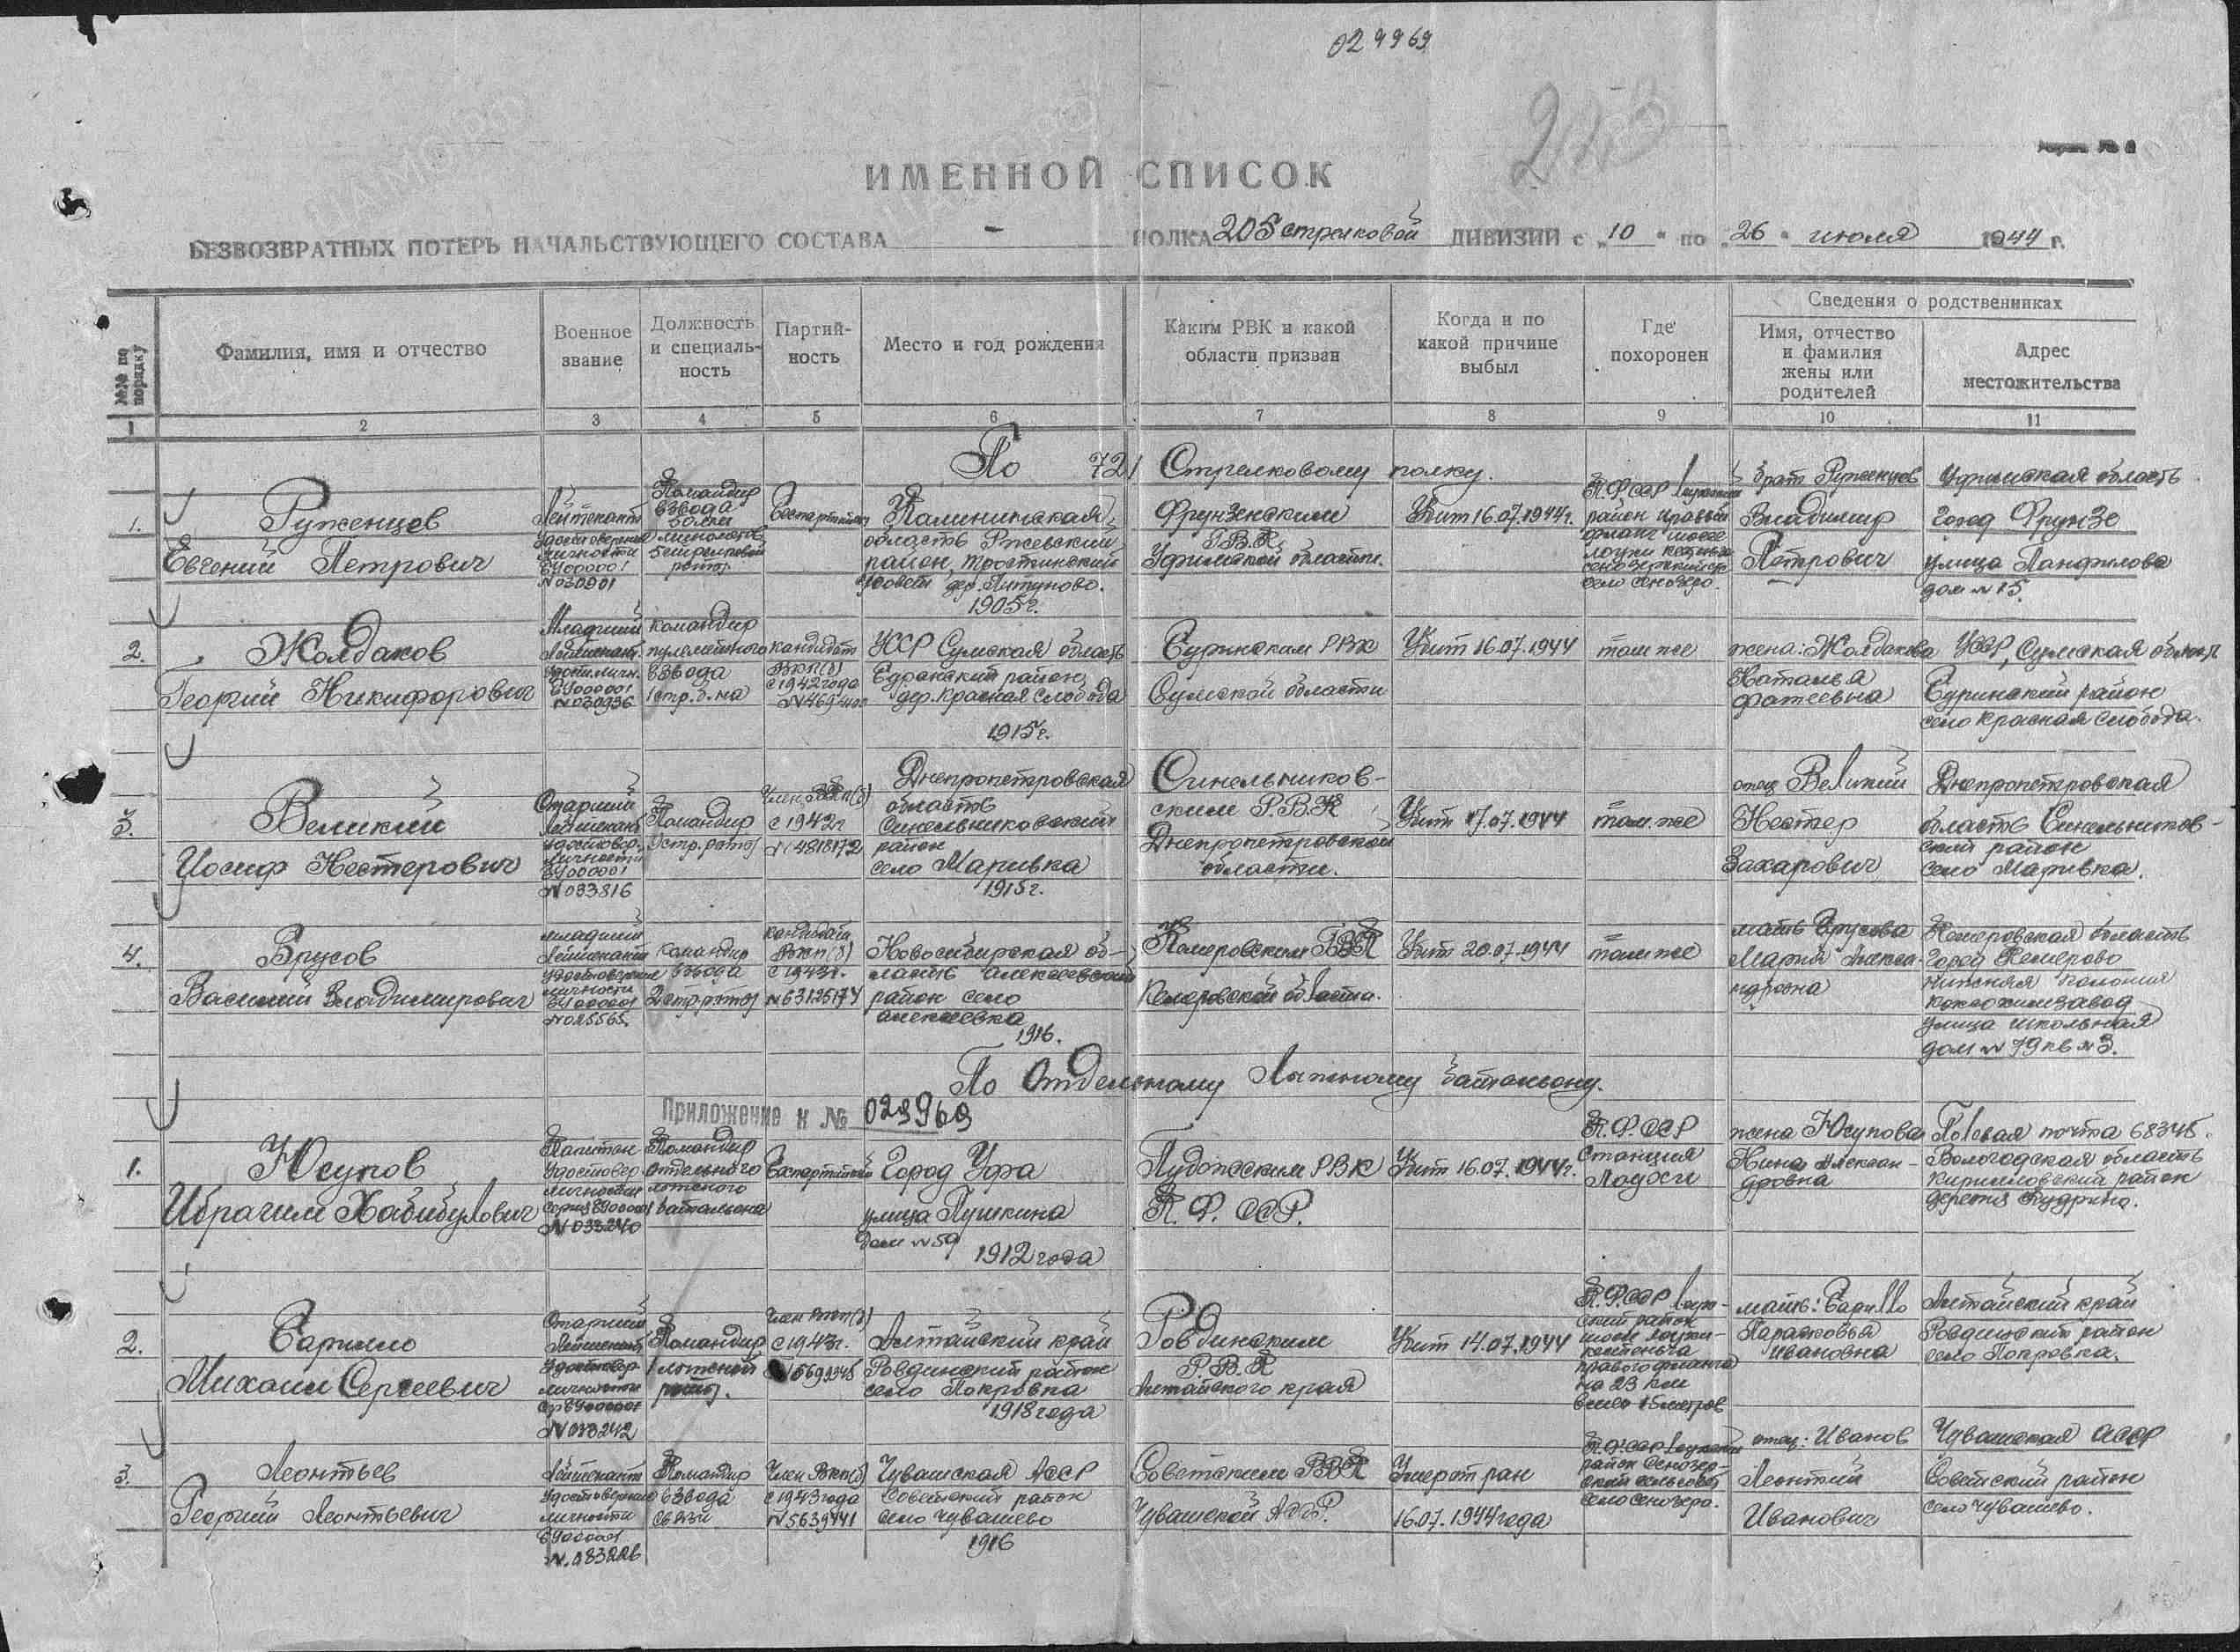 029969
223
ИМЕННОЙ СПИСОК
БЕЗВОЗВРАТНЫХ ПОТЕРЬ НАЧАЛЬСТВУЮЩЕГО СОСТАВА - ПОЛКА 205 стрелковой ДИВИЗИИ с „10" по „26" июля 1944 г.
№№ по порядку
Фамилия, имя и отчество
Военное звание
Должность и специаль-
ность
Партий-
ность
Место и год рождения
Каким РВК и какой области призван
Когда и по какой причине выбыл
Где похоронен
Сведения о родственниках
Имя, отчество и фамилия жены или родителей
Адрес местожительства
1 2 3 4 5 6 7 8 9 10 11
По 721 Стрелковому полку.
1.
Руженцев
Евгений Петрович
Лейтенант
удостоверение
личности
БЧ00001
N030901
Командир
взвода
роты
Беспартийн
Калининская
область Ржевский
район,
дер.
1905г.
Фрунзенским
Г.В.К.
Уфимской области.
Убит 16.07.1944г.
К.Ф.ССР
район правый
фланг
село Сенозеро.
брат Руженцев
Владимир
Петрович
Уфимская область
город Фрунзе
улица Панфилова
дом N 15.
2.
Жолдаков
Георгий Никифорович
Младший
лейтенант
удост.личн.
N030936
командир
пулеметного
взвода
1стр.б-на
кандидат
ВКП(б)
с 1942года
УССР Сумская область
район,
дер. Красная Слобода
1915г.
Буринским РВК
Сумской области
Убит 16.07.1944
там же
жена: Жолдакова
Наталья
Фатеевна
УССР, Сумская область
Буринский район
село Красная Слобода.
3.
Великий
Иосиф Нестерович
Старший
Лейтенант
удостовер.
личности
N033816
Командир
стр.роты
Член ВКП(б)
с 1942г
N4818172
Днепропетровская
область
Синельниковский
район
село Маривка
1915г.
Синельников-
ским Р.В.К
Днепропетровской
области.
Убит 17.07.1944
там же
отец Великий
Нестер
Захарович
Днепропетровская
область Синельников-
ский район
село Маривка.
4.
Брусов
Василий Владимирович
младший
лейтенант
удостоверение
личности
N025565.
командир
взвода
2стр.роты
кандидат
ВКП(б)
с 1943г.
N63125174
Новосибирская об-
ласть Алексеевский
район село
Алексеевка
1916.
Кемеровским ГВК
Кемеровской области.
Убит 20.07.1944
там же
мать Брусова
Мария Алекса-
ндровна
Кемеровская область
город Кемерово
Нижняя Колония
Коксохимзавод
улица Школьная
дом N 79 кв N 3.
По Отдельному Лыжному батальону.
Приложение к № 029969
1.
Юсупов
Ибрагим Хабибулович
Капитан
удостовер
личности
N033240
Командир
отдельного
лыжного
батальона
Беспартийный
Город Уфа
улица Пушкина
дом N 59
1912 года
Пудожским РВК
К.Ф. ССР.
Убит 16.07.1944г.
К.Ф.ССР
Станция
Лоухи
жена Юсупова
Нина Алексан-
дровна
Полевая почта 68346.
Вологодская область
Кирилловский район
деревня Кудрино.
2.
Гарилло
Михаил Сергеевич
Старший
Лейтенант
удостовер
личности
N033242
Командир
лыжной
роты.
Член ВКП(б)
с 1943г.
Алтайский край
район
село Покровка
1918года
Р.В.К
Алтайского края
Убит 14.07.1944
К.Ф.ССР
район
правого фланга
на 23 км
мать:
Парасковья
Ивановна
Алтайский край
район
село Покровка.
3.
Леонтьев
Георгий Леонтьевич
Лейтенант
удостоверение
личности
Командир
взвода
связи
Член ВКП(б)
с 1943года
N5639441
Чувашская АССР
Советский район
село Чувашево
1916
Советским РВК
Чувашской АССР.
Умер от ран
16.07.1944года
К.Ф.ССР
район Сенозер-
ский сельсовет
село Сенозеро.
отец: Иванов
Леонтий
Иванович
Чувашская АССР
Советский район
село Чувашево.